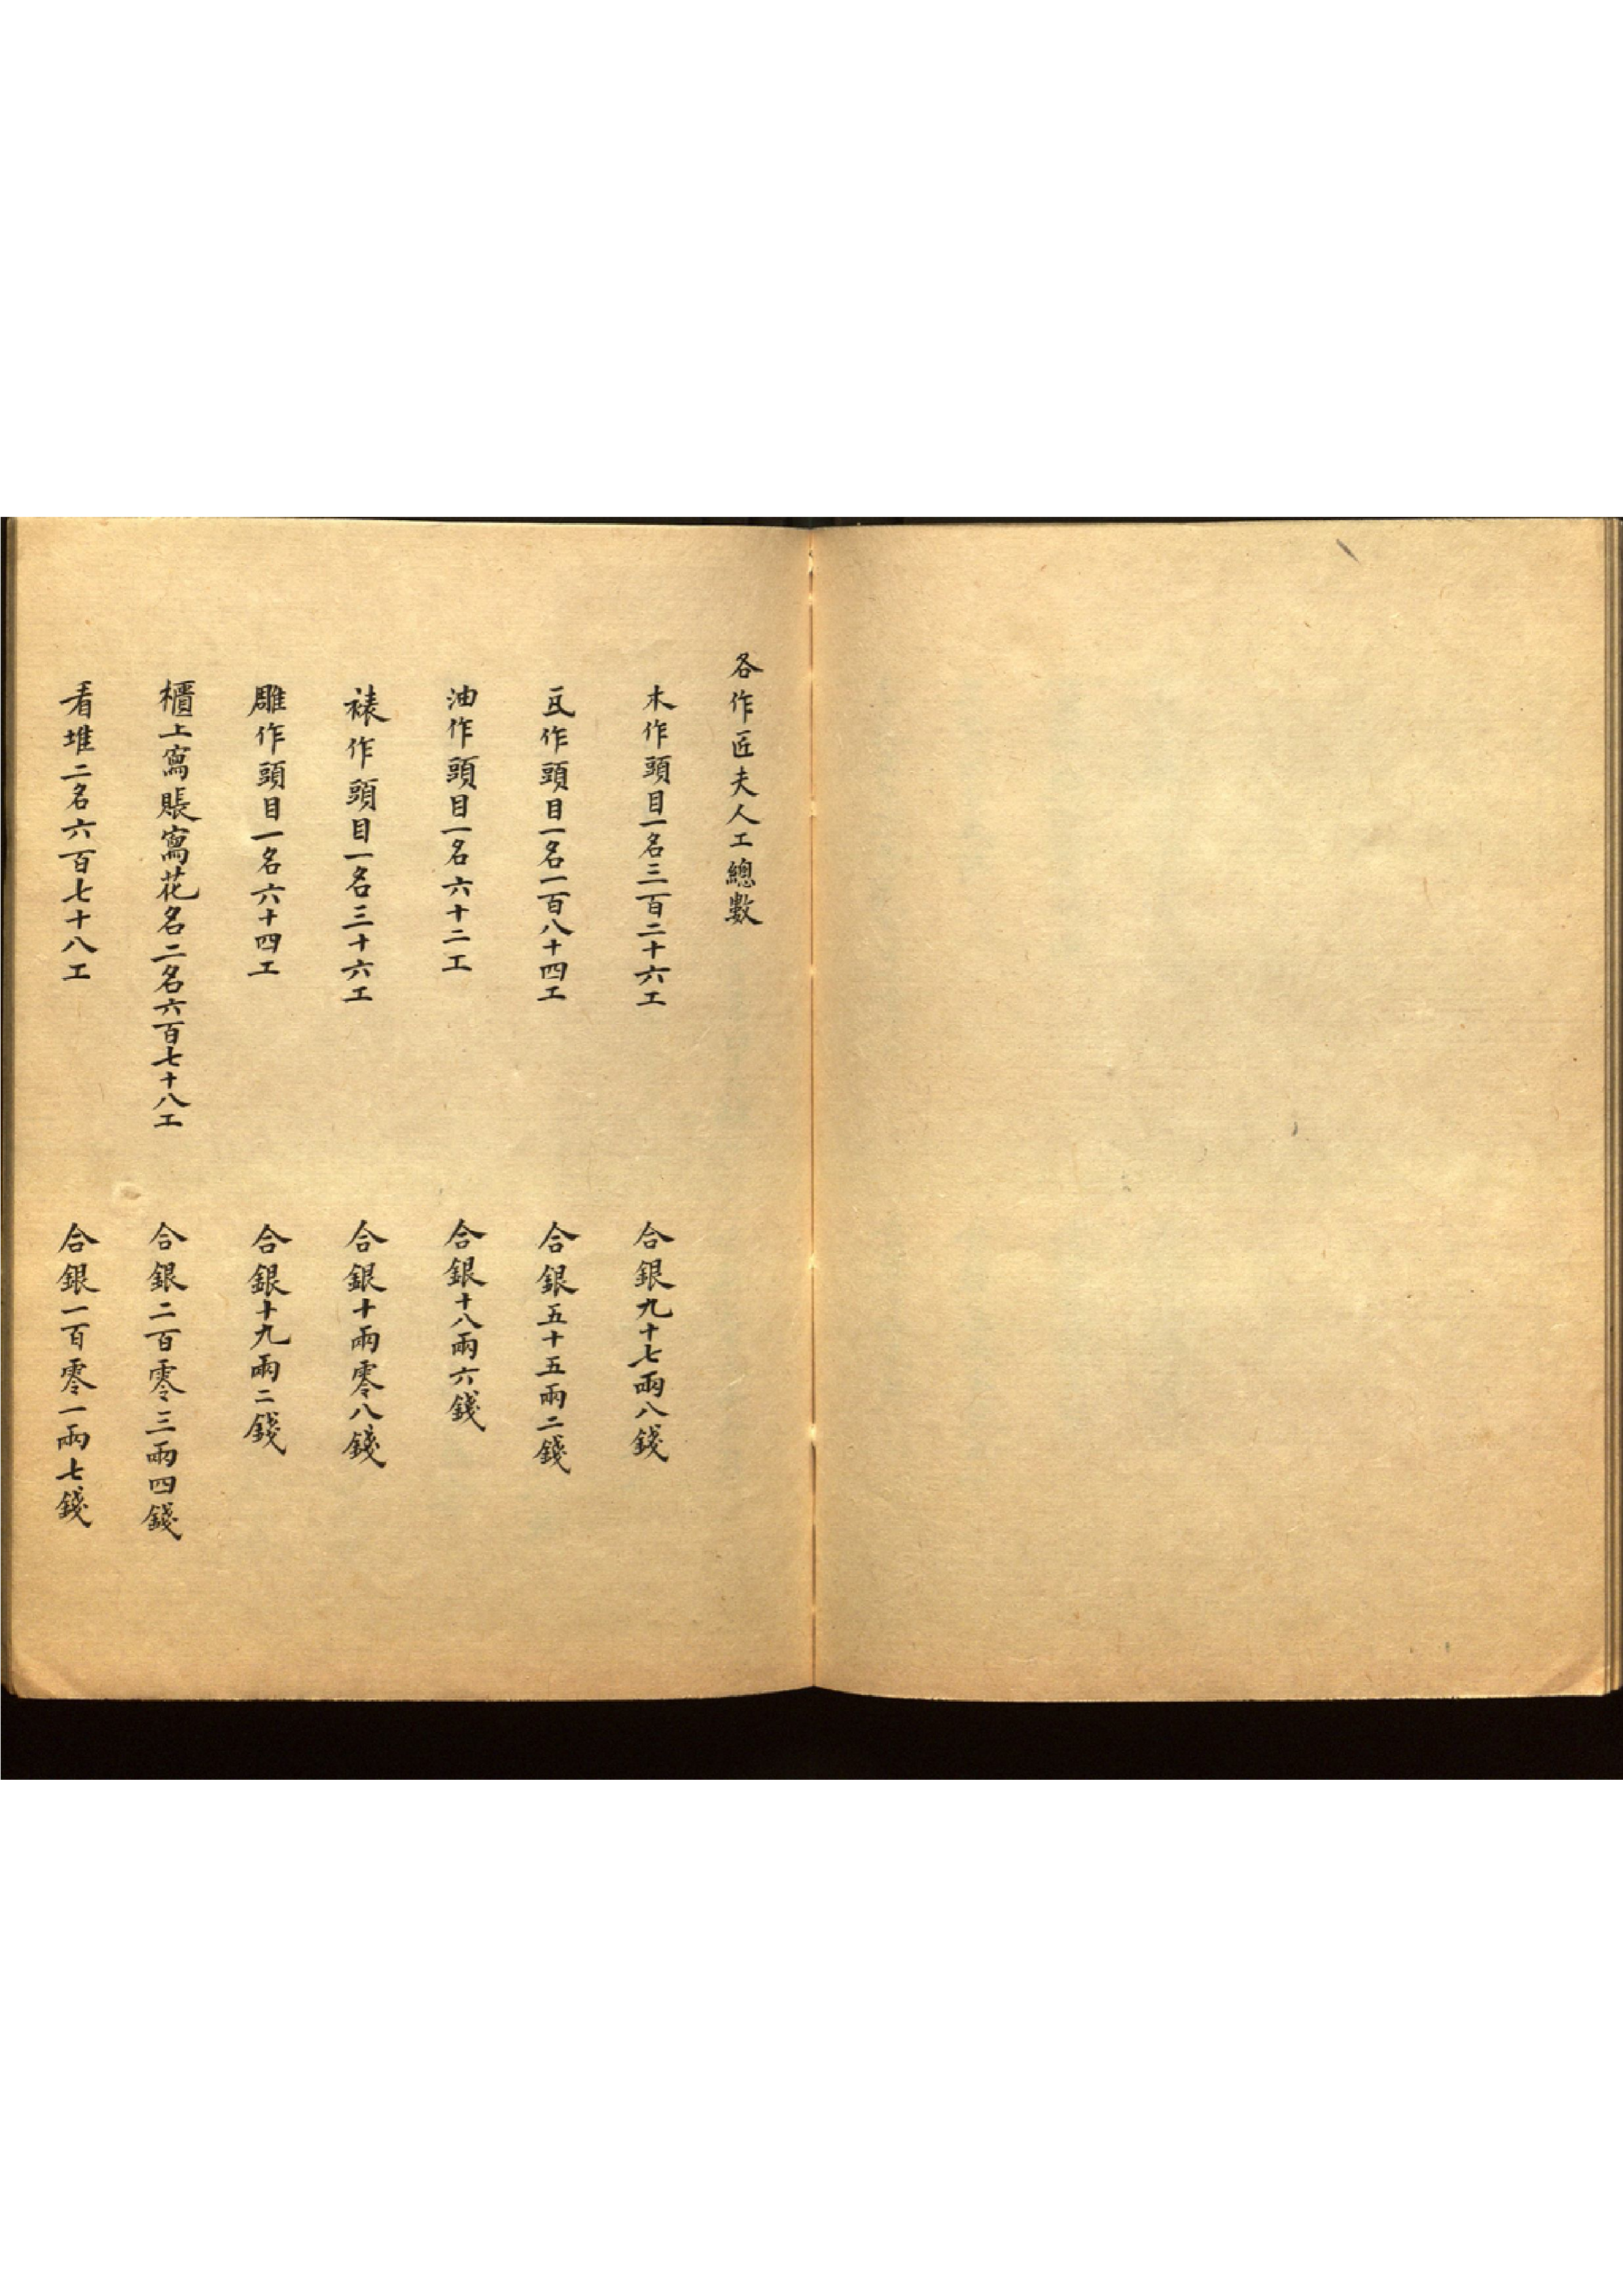 各作匠夫人工總數
木作頭目一名三百二十六工 合銀九十七兩八錢
瓦作頭目一名一百八十四工 合銀五十五兩二錢
油作頭目一名六十二工 合銀十八兩六錢
裱作頭目一名三十六工 合銀十兩零八錢
雕作頭目一名六十四工 合銀十九兩二錢
櫃上寫賬寫花名二名六百七十八工 合銀二百零三兩四錢
看堆二名六百七十八工 合銀一百零一兩七錢